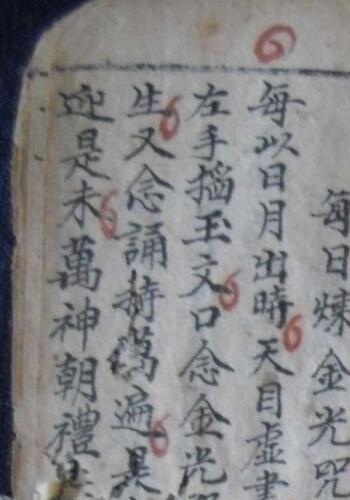 每日煉金光咒
每以日月出時天目虛書
左手掐玉文口念金光
生又念誦持萬遍
迎是未萬神朝禮